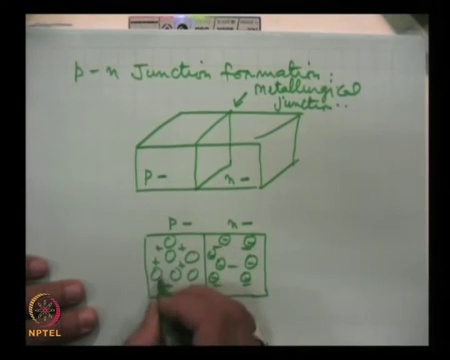 p-n Junction formation:
metallurgical
junction..
p-
n-
p-
n-
NPTEL